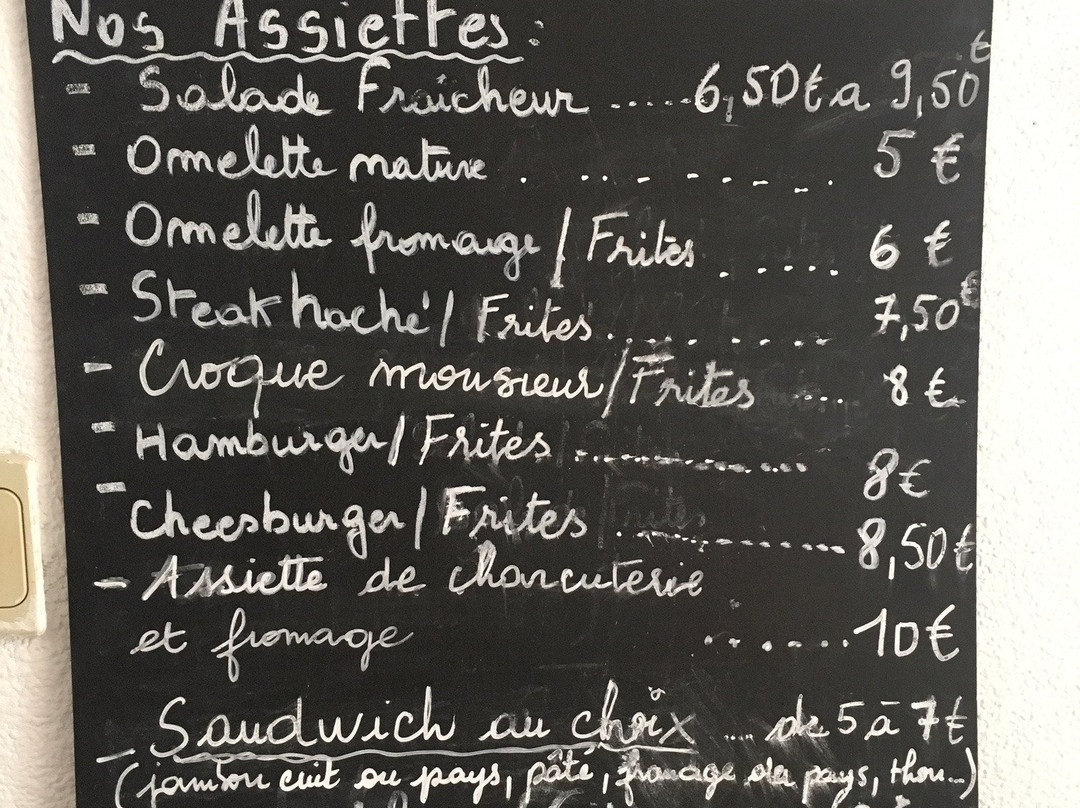 Nos Assiettes :
- Salade Fraîcheur ..... 6,50€ a 9,50€
- Omelette nature . .. - - - - . . 5 €
- Omelette fromage / Frites . ..... 6 €
- Steak haché / Frites .... . . - - 7,50€
- Croque monsieur / Frites .... 8 €
- Hamburger / Frites ................ 8€
- Cheesburger / Frites ............... 8,50€
- Assiette de charcuterie
et fromage ....... 10€
- Sandwich au choix .... de 5 à 7€
(jambon cuit ou pays, pâté, fromage de pays, thon...)